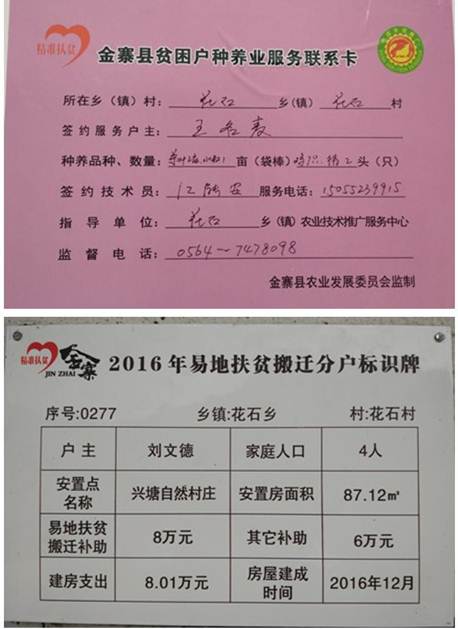 精准扶贫
金寨县贫困户种养业服务联系卡
所在乡（镇）村： 花石 乡（镇） 花石 村
签约服务户主：
种养品种、数量： 亩（袋棒） 头（只）
签约技术员： 服务电话：15055239915
指导单位： 花石 乡（镇）农业技术推广服务中心
监督电话： 0564—7478098
金寨县农业发展委员会监制
精准扶贫 金寨 2016年易地扶贫搬迁分户标识牌
JIN ZHAI
序号:0277 乡镇:花石乡 村:花石村
户主 刘文德 家庭人口 4人
安置点名称 兴塘自然村庄 安置房面积 87.12㎡
易地扶贫搬迁补助 8万元 其它补助 6万元
建房支出 8.01万元 房屋建成时间 2016年12月